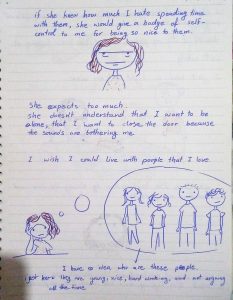 if she knew how much I hate spending time
with them, she would give a badge of self-
control to me for being so nice to them.
She expects too much.
she doesn't understand that I want to be
alone, that I want to close the door because
the sounds are bothering me.
I wish I could live with people that I love.
I have no idea who are these people.
I just know they are young, nice, hard working, and not arguing
all the time.